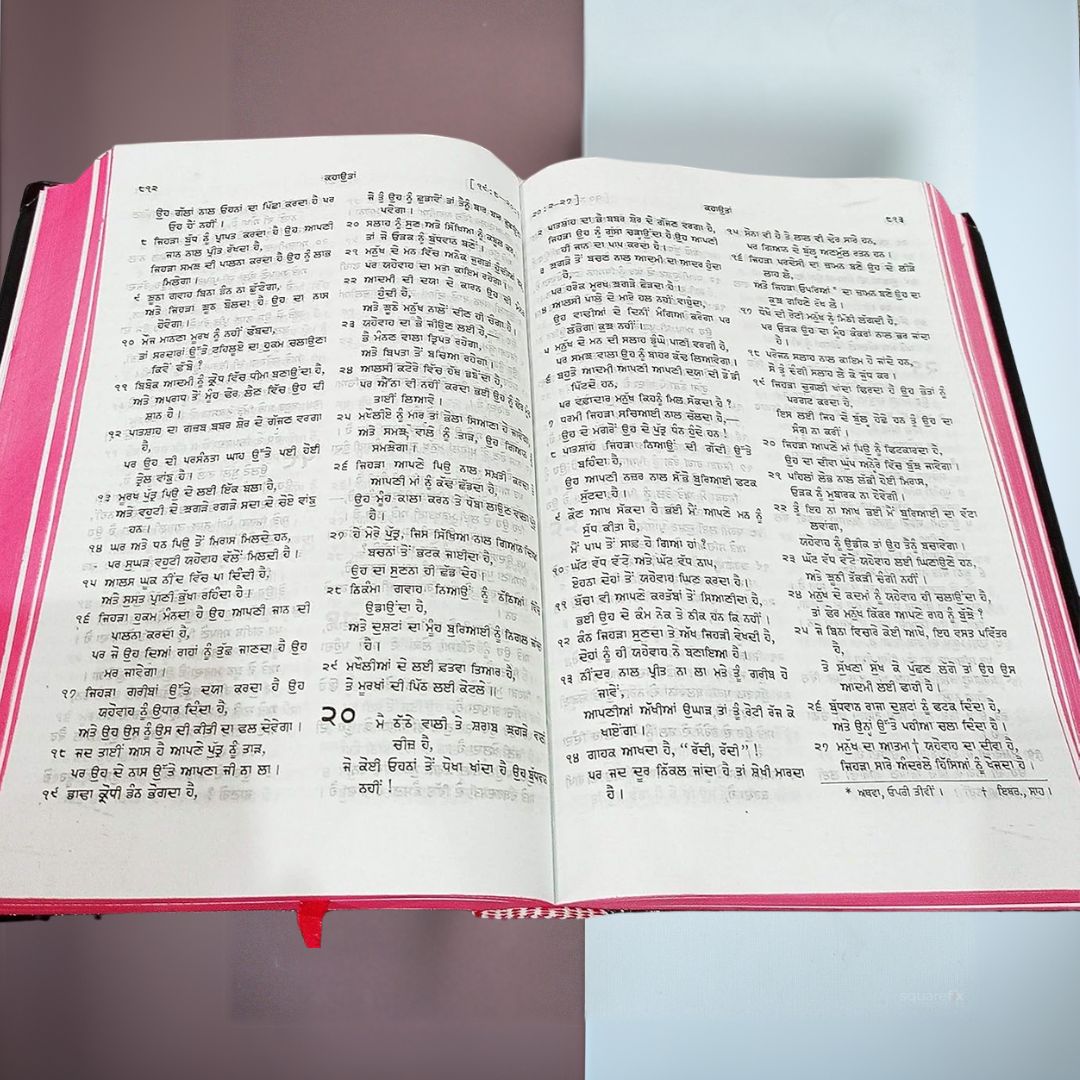 ੮੧੨
ਕਹਾਉਤਾਂ
[੧੯:੮-੨੦:
ਉਹ ਗੱਲਾਂ ਨਾਲ ਓਹਨਾਂ ਦਾ ਪਿੱਛਾ ਕਰਦਾ ਹੈ ਪਰ
ਓਹ ਹੈਂ ਨਹੀਂ।
੮ ਜਿਹੜਾ ਬੁੱਧ ਨੂੰ ਪ੍ਰਾਪਤ ਕਰਦਾ ਹੈ ਉਹ ਆਪਣੀ
ਜਾਨ ਨਾਲ ਪ੍ਰੀਤ ਰੱਖਦਾ ਹੈ,
ਜਿਹੜਾ ਸਮਝ ਦੀ ਪਾਲਨਾ ਕਰਦਾ ਹੈ ਉਹ ਨੂੰ ਲਾਭ
ਮਿਲੇਗਾ।
੯ ਝੂਠਾ ਗਵਾਹ ਬਿਨਾ ਡੰਨ ਨਾ ਛੁੱਟੇਗਾ,
ਅਤੇ ਜਿਹੜਾ ਝੂਠ ਬੋਲਦਾ ਹੈ ਉਹ ਦਾ ਨਾਸ
ਹੋਵੇਗਾ।
੧੦ ਮੌਜ ਮਾਣਨਾ ਮੂਰਖ ਨੂੰ ਨਹੀਂ ਫੱਬਦਾ,
ਤਾਂ ਸਰਦਾਰਾਂ ਉੱਤੇ ਟਹਿਲੂਏ ਦਾ ਹੁਕਮ ਚਲਾਉਣਾ
ਕਿਵੇਂ ਫੱਬੇ ?
੧੧ ਬਿਬੇਕ ਆਦਮੀ ਨੂੰ ਕ੍ਰੋਧ ਵਿੱਚ ਧੀਮਾ ਬਣਾਉਂਦਾ ਹੈ,
ਅਤੇ ਅਪਰਾਧ ਤੋਂ ਮੂੰਹ ਫੇਰ ਲੈਣ ਵਿੱਚ ਉਹ ਦੀ
ਸ਼ਾਨ ਹੈ।
੧੨ ਪਾਤਸ਼ਾਹ ਦਾ ਗਜ਼ਬ ਬਬਰ ਸ਼ੇਰ ਦੇ ਗੱਜਣ ਵਰਗਾ
ਹੈ,
ਪਰ ਉਹ ਦੀ ਪਰਸੰਨਤਾ ਘਾਹ ਉੱਤੇ ਪਈ ਹੋਈ
ਤ੍ਰੇਲ ਵਾਂਙੁ ਹੈ।
੧੩ ਮੂਰਖ ਪੁੱਤ੍ਰ ਪਿਉ ਦੇ ਲਈ ਇੱਕ ਬਲਾ ਹੈ,
ਅਤੇ ਵਹੁਟੀ ਦੇ ਝਗੜੇ ਰਗੜੇ ਸਦਾ ਦੇ ਚੋਏ ਵਾਂਙੁ
ਹਨ।
੧੪ ਘਰ ਅਤੇ ਧਨ ਪਿਉ ਤੋਂ ਮਿਰਾਸ ਮਿਲਦੇ ਹਨ,
ਪਰ ਸੁਘੜ ਵਹੁਟੀ ਯਹੋਵਾਹ ਵੱਲੋਂ ਮਿਲਦੀ ਹੈ।
੧੫ ਆਲਸ ਘੂਕ ਨੀਂਦ ਵਿੱਚ ਪਾ ਦਿੰਦੀ ਹੈ,
ਅਤੇ ਸੁਸਤ ਪ੍ਰਾਣੀ ਭੁੱਖਾ ਰਹਿੰਦਾ ਹੈ।
੧੬ ਜਿਹੜਾ ਹੁਕਮ ਮੰਨਦਾ ਹੈ ਉਹ ਆਪਣੀ ਜਾਨ ਦੀ
ਪਾਲਨਾ ਕਰਦਾ ਹੈ,
ਪਰ ਜੋ ਉਹ ਦਿਆਂ ਰਾਹਾਂ ਨੂੰ ਤੁੱਛ ਜਾਣਦਾ ਹੈ ਉਹ
ਮਰ ਜਾਵੇਗਾ।
੧੭ ਜਿਹੜਾ ਗਰੀਬਾਂ ਉੱਤੇ ਦਯਾ ਕਰਦਾ ਹੈ ਉਹ
ਯਹੋਵਾਹ ਨੂੰ ਉਧਾਰ ਦਿੰਦਾ ਹੈ,
ਅਤੇ ਉਹ ਉਸ ਨੂੰ ਉਸ ਦੀ ਕੀਤੀ ਦਾ ਫਲ ਦੇਵੇਗਾ।
੧੮ ਜਦ ਤਾਈਂ ਆਸ ਹੈ ਆਪਣੇ ਪੁੱਤ੍ਰ ਨੂੰ ਤਾੜ,
ਪਰ ਉਹ ਦੇ ਨਾਸ ਉੱਤੇ ਆਪਣਾ ਜੀ ਨਾ ਲਾ।
੧੯ ਡਾਢਾ ਕ੍ਰੋਧੀ ਡੰਨ ਭੋਗਦਾ ਹੈ,
ਜੇ ਤੂੰ ਉਹ ਨੂੰ ਛੁਡਾਵੇਂ ਤਾਂ ਤੈਨੂੰ ਬਾਰ ਬਾਰ
ਪਵੇਗਾ।
੨੦ ਸਲਾਹ ਨੂੰ ਸੁਣ ਅਤੇ ਸਿੱਖਿਆ ਨੂੰ ਕਬੂਲ ਕਰ
ਤਾਂ ਜੋ ਓੜਕ ਨੂੰ ਬੁੱਧਵਾਨ ਬਣੇਂ।
੨੧ ਮਨੁੱਖ ਦੇ ਮਨ ਵਿੱਚ ਅਨੇਕ ਜੁਗਤਾਂ ਹੁੰਦੀਆਂ
ਪਰ ਯਹੋਵਾਹ ਦਾ ਮਤਾ ਕਾਇਮ ਰਹੇਗਾ।
੨੨ ਆਦਮੀ ਦੀ ਦਯਾ ਦੇ ਕਾਰਨ ਉਹ ਦੀ
ਹੁੰਦੀ ਹੈ,
ਅਤੇ ਝੂਠੇ ਮਨੁੱਖ ਨਾਲੋਂ ਦੀਣ ਹੀ ਚੰਗਾ ਹੈ।
੨੩ ਯਹੋਵਾਹ ਦਾ ਭੈ ਜੀਉਣ ਲਈ ਹੈ,—
ਭੈ ਮੰਨਣ ਵਾਲਾ ਤ੍ਰਿਪਤ ਰਹੇਗਾ,
ਅਤੇ ਬਿਪਤਾ ਤੋਂ ਬਚਿਆ ਰਹੇਗਾ।
੨੪ ਆਲਸੀ ਕਟੋਰੇ ਵਿੱਚ ਹੱਥ ਡਬੋਂਦਾ ਹੈ,
ਪਰ ਐੱਨਾ ਵੀ ਨਹੀਂ ਕਰਦਾ ਭਈ ਉਹ ਨੂੰ ਫੇਰ
ਤਾਈਂ ਲਿਆਵੇ।
੨੫ ਮਖੌਲੀਏ ਨੂੰ ਮਾਰ ਤਾਂ ਭੋਲਾ ਸਿਆਣਾ ਹੋ ਜਾਵੇਗਾ,
ਅਤੇ ਸਮਝ ਵਾਲੇ ਨੂੰ ਤਾੜ, ਉਹ ਗਿਆਨ
ਸਮਝੇਗਾ।
੨੬ ਜਿਹੜਾ ਆਪਣੇ ਪਿਉ ਨਾਲ ਸਖ਼ਤੀ ਕਰਦਾ
ਆਪਣੀ ਮਾਂ ਨੂੰ ਕੱਢ ਛੱਡਦਾ ਹੈ,
ਉਹ ਮੂੰਹ ਕਾਲਾ ਕਰਨ ਤੇ ਧੱਬਾ ਲਾਉਣ ਵਾਲਾ
ਹੈ।
੨੭ ਹੇ ਮੇਰੇ ਪੁੱਤ੍ਰ, ਜਿਸ ਸਿੱਖਿਆ ਨਾਲ ਗਿਆਨ ਦਿਆਂ
ਬਚਨਾਂ ਤੋਂ ਭਟਕ ਜਾਈਦਾ ਹੈ,
ਉਹ ਦਾ ਸੁਣਨਾ ਹੀ ਛੱਡ ਦੇਹ।
੨੮ ਨਿਕੰਮਾ ਗਵਾਹ ਨਿਆਉਂ ਨੂੰ ਠੱਠਿਆਂ ਵਿੱਚ
ਉਡਾਉਂਦਾ ਹੈ,
ਅਤੇ ਦੁਸ਼ਟਾਂ ਦਾ ਮੂੰਹ ਬੁਰਿਆਈ ਨੂੰ ਨਿਗਲ ਜਾਂਦਾ
ਹੈ।
੨੯ ਮਖੌਲੀਆਂ ਦੇ ਲਈ ਫ਼ਤਵਾ ਤਿਆਰ ਹੈ,
ਤੇ ਮੂਰਖਾਂ ਦੀ ਪਿੱਠ ਲਈ ਕੋਟਲੇ॥
੨੦ ਮੈ ਠੱਠੇ ਵਾਲੀ ਤੇ ਸ਼ਰਾਬ ਝਗੜੇ ਵਾਲੀ
ਚੀਜ਼ ਹੈ,
ਜੋ ਕੋਈ ਓਹਨਾਂ ਤੋਂ ਧੋਖਾ ਖਾਂਦਾ ਹੈ ਉਹ ਬੁੱਧਵਾਨ
ਨਹੀਂ !
੨੦:੨-੨੭]
ਕਹਾਉਤਾਂ
੮੧੩
੨ ਪਾਤਸ਼ਾਹ ਦਾ ਭੈ ਬਬਰ ਸ਼ੇਰ ਦੇ ਗੱਜਣ ਵਰਗਾ ਹੈ,
ਜਿਹੜਾ ਉਹ ਨੂੰ ਗੁੱਸਾ ਚੜ੍ਹਾਉਂਦਾ ਹੈ ਉਹ ਆਪਣੀ
ਹੀ ਜਾਨ ਦਾ ਪਾਪ ਕਰਦਾ ਹੈ।
੩ ਝਗੜੇ ਤੋਂ ਬਚਣ ਨਾਲ ਆਦਮੀ ਦਾ ਆਦਰ ਹੁੰਦਾ
ਹੈ,
ਪਰ ਹਰੇਕ ਮੂਰਖ ਝਗੜਾ ਛੇੜਦਾ ਹੈ।
੪ ਆਲਸੀ ਪਾਲੇ ਦੇ ਮਾਰੇ ਹਲ ਨਹੀਂ ਵਾਹੁੰਦਾ,
ਉਹ ਵਾਢੀਆਂ ਦੇ ਦਿਨੀਂ ਮੰਗਿਆ ਕਰੇਗਾ ਪਰ
ਲੱਭੇਗਾ ਕੁਝ ਨਹੀਂ।
੫ ਮਨੁੱਖ ਦੇ ਮਨ ਦੀ ਸਲਾਹ ਡੂੰਘੇ ਪਾਣੀ ਵਰਗੀ ਹੈ,
ਪਰ ਸਮਝ ਵਾਲਾ ਉਹ ਨੂੰ ਬਾਹਰ ਕੱਢ ਲਿਆਵੇਗਾ।
੬ ਬਹੁਤੇ ਆਦਮੀ ਆਪਣੀ ਆਪਣੀ ਦਯਾ ਦੀ ਡੌਂਡੀ
ਪਿੱਟਦੇ ਹਨ,
ਪਰ ਵਫ਼ਾਦਾਰ ਮਨੁੱਖ ਕਿਹਨੂੰ ਮਿਲ ਸੱਕਦਾ ਹੈ ?
੭ ਧਰਮੀ ਜਿਹੜਾ ਸਚਿਆਈ ਨਾਲ ਚੱਲਦਾ ਹੈ,—
ਉਹ ਦੇ ਮਗਰੋਂ ਉਹ ਦੇ ਪੁੱਤ੍ਰ ਧੰਨ ਹੁੰਦੇ ਹਨ !
੮ ਪਾਤਸ਼ਾਹ ਜਿਹੜਾ ਨਿਆਉਂ ਦੀ ਗੱਦੀ ਉੱਤੇ
ਬਹਿੰਦਾ ਹੈ,
ਉਹ ਆਪਣੀ ਨਜ਼ਰ ਨਾਲ ਸੱਭੋ ਬੁਰਿਆਈ ਫਟਕ
ਸੁੱਟਦਾ ਹੈ।
੯ ਕੌਣ ਆਖ ਸੱਕਦਾ ਹੈ ਭਈ ਮੈਂ ਆਪਣੇ ਮਨ ਨੂੰ
ਸ਼ੁੱਧ ਕੀਤਾ ਹੈ,
ਮੈਂ ਪਾਪ ਤੋਂ ਸਾਫ਼ ਹੋ ਗਿਆ ਹਾਂ ?
੧੦ ਘੱਟ ਵੱਧ ਵੱਟੇ ਅਤੇ ਘੱਟ ਵੱਧ ਨਾਪ,
ਏਹਨਾ ਦੋਹਾਂ ਤੋਂ ਯਹੋਵਾਹ ਘਿਣ ਕਰਦਾ ਹੈ।
੧੧ ਬੱਚਾ ਵੀ ਆਪਣੇ ਕਰਤੱਬਾਂ ਤੋਂ ਸਿਆਣੀਦਾ ਹੈ,
ਭਈ ਉਹ ਦੇ ਕੰਮ ਨੇਕ ਤੇ ਠੀਕ ਹਨ ਕਿ ਨਹੀਂ।
੧੨ ਕੰਨ ਜਿਹੜਾ ਸੁਣਦਾ ਤੇ ਅੱਖ ਜਿਹੜੀ ਵੇਖਦੀ ਹੈ,
ਦੋਹਾਂ ਨੂੰ ਹੀ ਯਹੋਵਾਹ ਨੇ ਬਣਾਇਆ ਹੈ।
੧੩ ਨੀਂਦਰ ਨਾਲ ਪ੍ਰੀਤ ਨਾ ਲਾ ਮਤੇ ਤੂੰ ਗਰੀਬ ਹੋ
ਜਾਵੇਂ,
ਆਪਣੀਆਂ ਅੱਖੀਆਂ ਉਘਾੜ ਤਾਂ ਤੂੰ ਰੋਟੀ ਰੱਜ ਕੇ
ਖਾਏਂਗਾ।
੧੪ ਗਾਹਕ ਆਖਦਾ ਹੈ, “ਰੱਦੀ, ਰੱਦੀ” !
ਪਰ ਜਦ ਦੂਰ ਨਿੱਕਲ ਜਾਂਦਾ ਹੈ ਤਾਂ ਸ਼ੇਖੀ ਮਾਰਦਾ
ਹੈ।
੧੫ ਸੋਨਾ ਵੀ ਹੈ ਤੇ ਲਾਲ ਵੀ ਢੇਰ ਸਾਰੇ ਹਨ,
ਪਰ ਗਿਆਨ ਦੇ ਬੁੱਲ੍ਹ ਅਣਮੁੱਲ ਰਤਨ ਹਨ।
੧੬ ਜਿਹੜਾ ਪਰਦੇਸੀ ਦਾ ਜ਼ਾਮਨ ਬਣੇ ਉਹ ਦੇ ਲੀੜੇ
ਲਾਹ ਲੈ,
ਅਤੇ ਜਿਹੜਾ ਓਪਰਿਆਂ* ਦਾ ਜ਼ਾਮਨ ਬਣੇ ਉਹ ਦਾ
ਕੁਝ ਗਹਿਣੇ ਰੱਖ ਲੈ।
੧੭ ਧੋਖੇ ਦੀ ਰੋਟੀ ਮਨੁੱਖ ਨੂੰ ਮਿੱਠੀ ਲੱਗਦੀ ਹੈ,
ਪਰ ਓੜਕ ਉਹ ਦਾ ਮੂੰਹ ਕੰਕਰਾਂ ਨਾਲ ਭਰ ਜਾਂਦਾ
ਹੈ।
੧੮ ਪਰੋਜਨ ਸਲਾਹ ਨਾਲ ਕਾਇਮ ਹੋ ਜਾਂਦੇ ਹਨ,
ਸੋ ਤੂੰ ਚੰਗੀ ਸਲਾਹ ਲੈ ਕੇ ਜੁੱਧ ਕਰ।
੧੯ ਜਿਹੜਾ ਚੁਗਲੀ ਖਾਂਦਾ ਫਿਰਦਾ ਹੈ ਉਹ ਭੇਤਾਂ ਨੂੰ
ਪਰਗਟ ਕਰਦਾ ਹੈ,
ਇਸ ਲਈ ਜਿਹ ਦੇ ਬੁੱਲ੍ਹ ਹੋਛੇ ਹਨ ਤੂੰ ਉਹ ਦਾ
ਸੰਗ ਨਾ ਕਰੀਂ।
੨੦ ਜਿਹੜਾ ਆਪਣੇ ਮਾਂ ਪਿਉ ਨੂੰ ਫਿਟਕਾਰਦਾ ਹੈ,
ਉਹ ਦਾ ਦੀਵਾ ਘੁੱਪ ਅਨੇਰ ਵਿੱਚ ਬੁੱਝ ਜਾਵੇਗਾ।
੨੧ ਪਹਿਲਾਂ ਲੋਭ ਨਾਲ ਲੱਭੀ ਹੋਈ ਮਿਰਾਸ,
ਓੜਕ ਨੂੰ ਮੁਬਾਰਕ ਨਾ ਹੋਵੇਗੀ।
੨੨ ਤੂੰ ਇਹ ਨਾ ਆਖ ਭਈ ਮੈਂ ਬੁਰਿਆਈ ਦਾ ਵੱਟਾ
ਲਵਾਂਗਾ,
ਯਹੋਵਾਹ ਨੂੰ ਉਡੀਕ ਤਾਂ ਉਹ ਤੈਨੂੰ ਬਚਾਵੇਗਾ।
੨੩ ਘੱਟ ਵੱਧ ਵੱਟੇ ਯਹੋਵਾਹ ਲਈ ਘਿਣਾਉਣੇ ਹਨ,
ਅਤੇ ਝੂਠੀ ਤੱਕੜੀ ਚੰਗੀ ਨਹੀਂ।
੨੪ ਮਨੁੱਖ ਦੇ ਕਦਮਾਂ ਨੂੰ ਯਹੋਵਾਹ ਹੀ ਚਲਾਉਂਦਾ ਹੈ,
ਤਾਂ ਫੇਰ ਮਨੁੱਖ ਕਿੱਕਰ ਆਪਣੇ ਰਾਹ ਨੂੰ ਬੁੱਝੇ ?
੨੫ ਜੋ ਬਿਨਾ ਵਿਚਾਰੇ ਕੋਈ ਆਖੇ, ਇਹ ਵਸਤ ਪਵਿੱਤਰ
ਹੈ,
ਤੇ ਸੁੱਖਣਾ ਸੁੱਖ ਕੇ ਪੁੱਛਣ ਲੱਗੇ ਤਾਂ ਉਹ ਉਸ
ਆਦਮੀ ਲਈ ਫਾਹੀ ਹੈ।
੨੬ ਬੁੱਧਵਾਨ ਰਾਜਾ ਦੁਸ਼ਟਾਂ ਨੂੰ ਫਟਕ ਦਿੰਦਾ ਹੈ,
ਅਤੇ ਉਨ੍ਹਾਂ ਉੱਤੇ ਪਹੀਆ ਚਲਾ ਦਿੰਦਾ ਹੈ।
੨੭ ਮਨੁੱਖ ਦਾ ਆਤਮਾ† ਯਹੋਵਾਹ ਦਾ ਦੀਵਾ ਹੈ,
ਜਿਹੜਾ ਸਾਰੇ ਅੰਦਰਲੇ ਹਿੱਸਿਆਂ ਨੂੰ ਖੋਜਦਾ ਹੈ।
* ਅਥਵਾ, ਓਪਰੀ ਤੀਵੀਂ।
† ਇਬਰ., ਸਾਹ।
squarefx